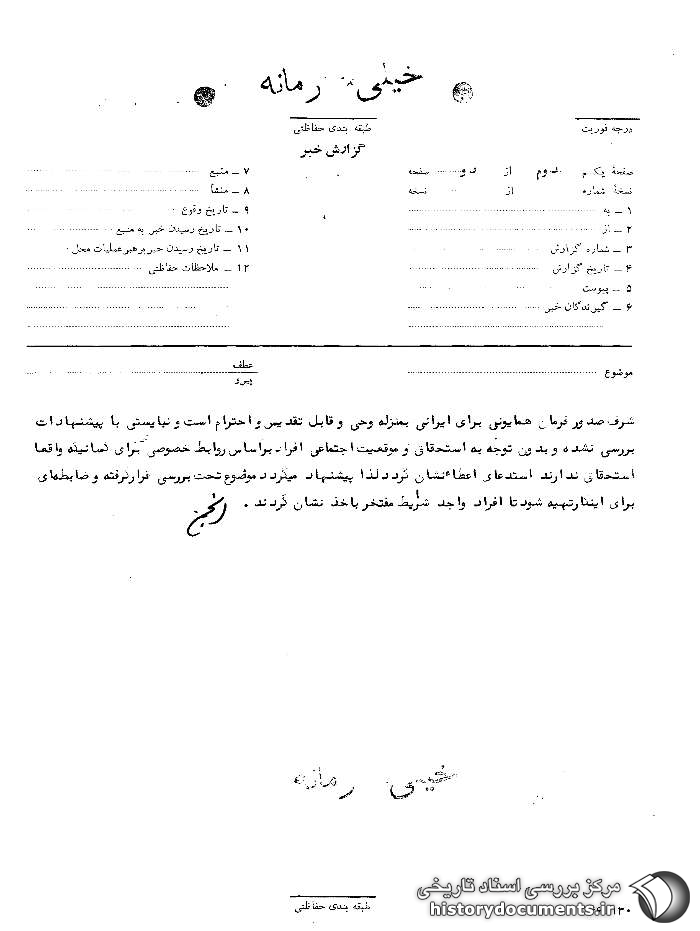 خیلی محرمانه
درجه فوریت
طبقه بندی حفاظتی
گزارش خبر
صفحهٔ یکم دوم از دو صفحه
نسخهٔ شماره از نسخه
۱ ــ به
۲ ــ از
۳ ــ شماره گزارش
۴ ــ تاریخ گزارش
۵ ــ پیوست
۶ ــ گیرندگان خبر
۷ ــ منبع
۸ ــ منشأ
۹ ــ تاریخ وقوع
۱۰ ــ تاریخ رسیدن خبر به منبع
۱۱ ــ تاریخ رسیدن خبر برهبر عملیات محل
۱۲ ــ ملاحظات حفاظتی
موضوع
عطف
پیرو
شرف صدور فرمان همایونی برای ایرانی بمنزله وحی و قابل تقدیس و احترام است و نبایستی با پیشنهادات
بررسی نشده و بدون توجه به استحقاق و موقعیت اجتماعی افراد براساس روابط خصوصی برای کسانیکه واقعا
استحقاق ندارند استدعای اعطاء نشان گردد لذا پیشنهاد میگردد موضوع تحت بررسی قرارگرفته و ضابطه‌ای
برای اینکار تهیه شود تا افراد واجد شرایط مفتخر باخذ نشان گردند .
خیلی محرمانه
طبقه بندی حفاظتی
مرکز بررسی اسناد تاریخی
historydocuments.ir